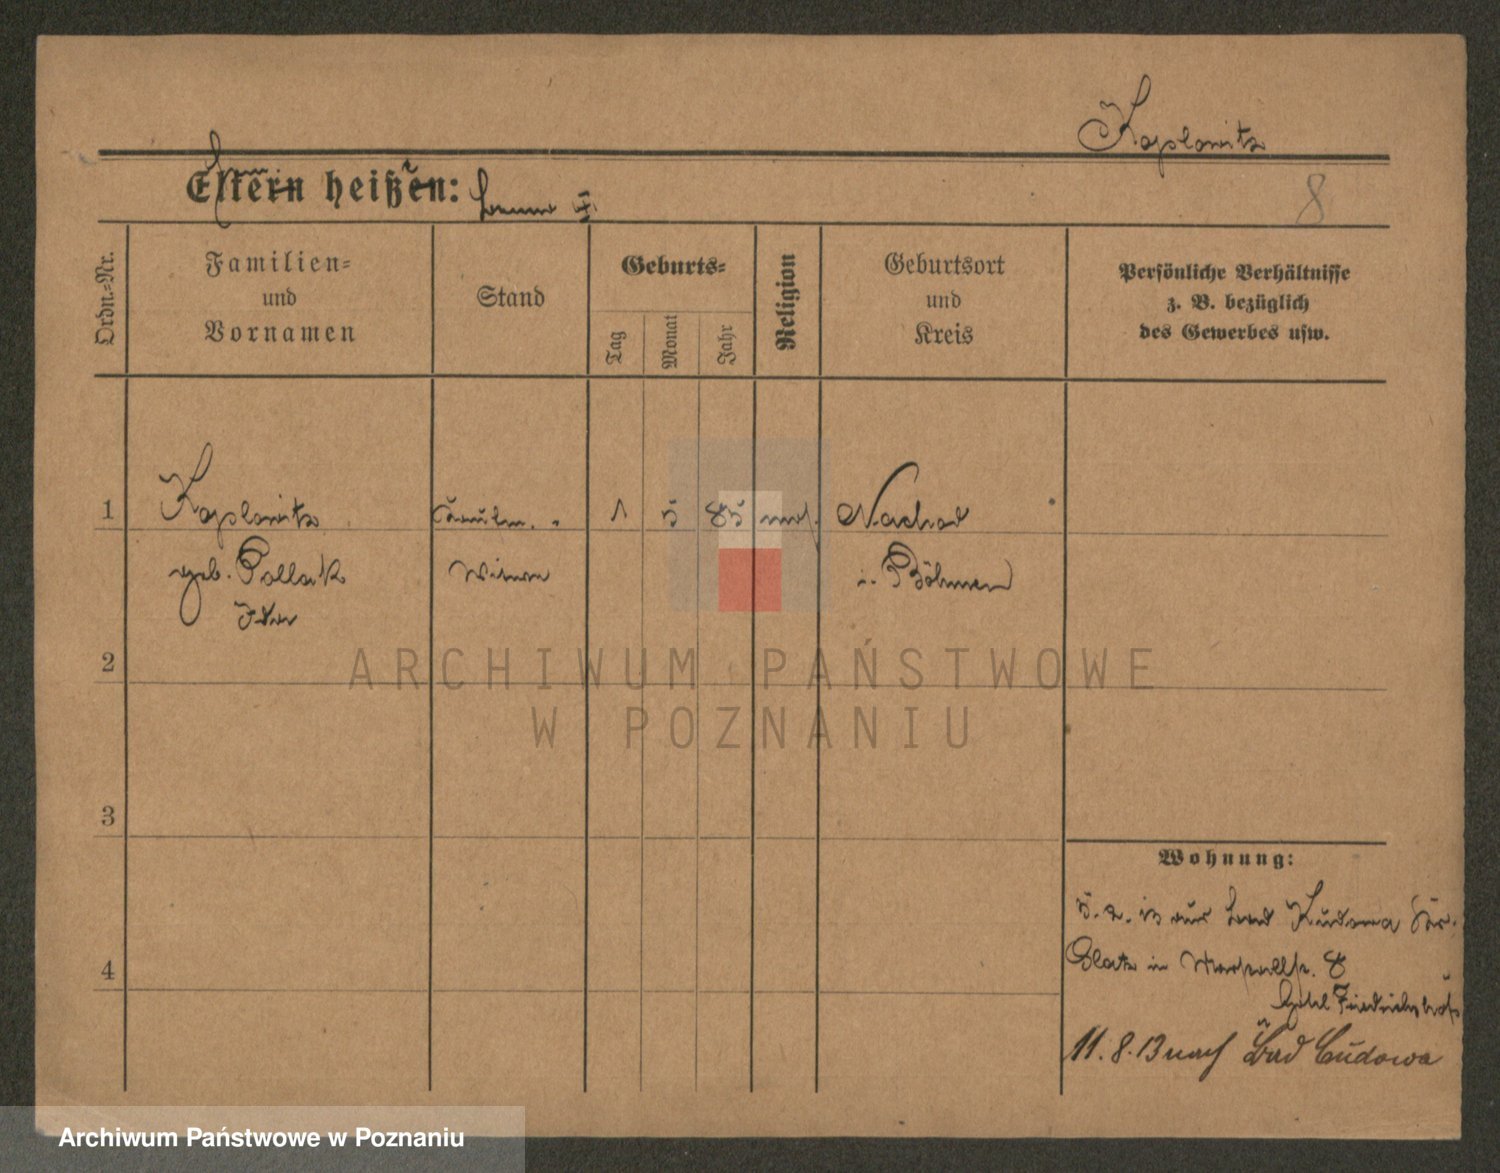 Kaplowitz
Eltern heißen:
8
Ordn.-Nr.
Familien-
und
Vornamen
Stand
Geburts-
Tag
Monat
Jahr
Religion
Geburtsort
und
Kreis
Persönliche Verhältnisse
z. B. bezüglich
des Gewerbes usw.
1 Kaplowitz 1 5 85 mos. Nachod
geb. Pollack Witwe i. Böhmen
Ida
2
3
4
Wohnung:
5. 2. 13 aus Bad Kudowa
Glatz in 8
Hotel Friedrichshof
11. 8. 13 nach Bad Cudowa
ARCHIWUM PAŃSTWOWE
W POZNANIU
Archiwum Państwowe w Poznaniu